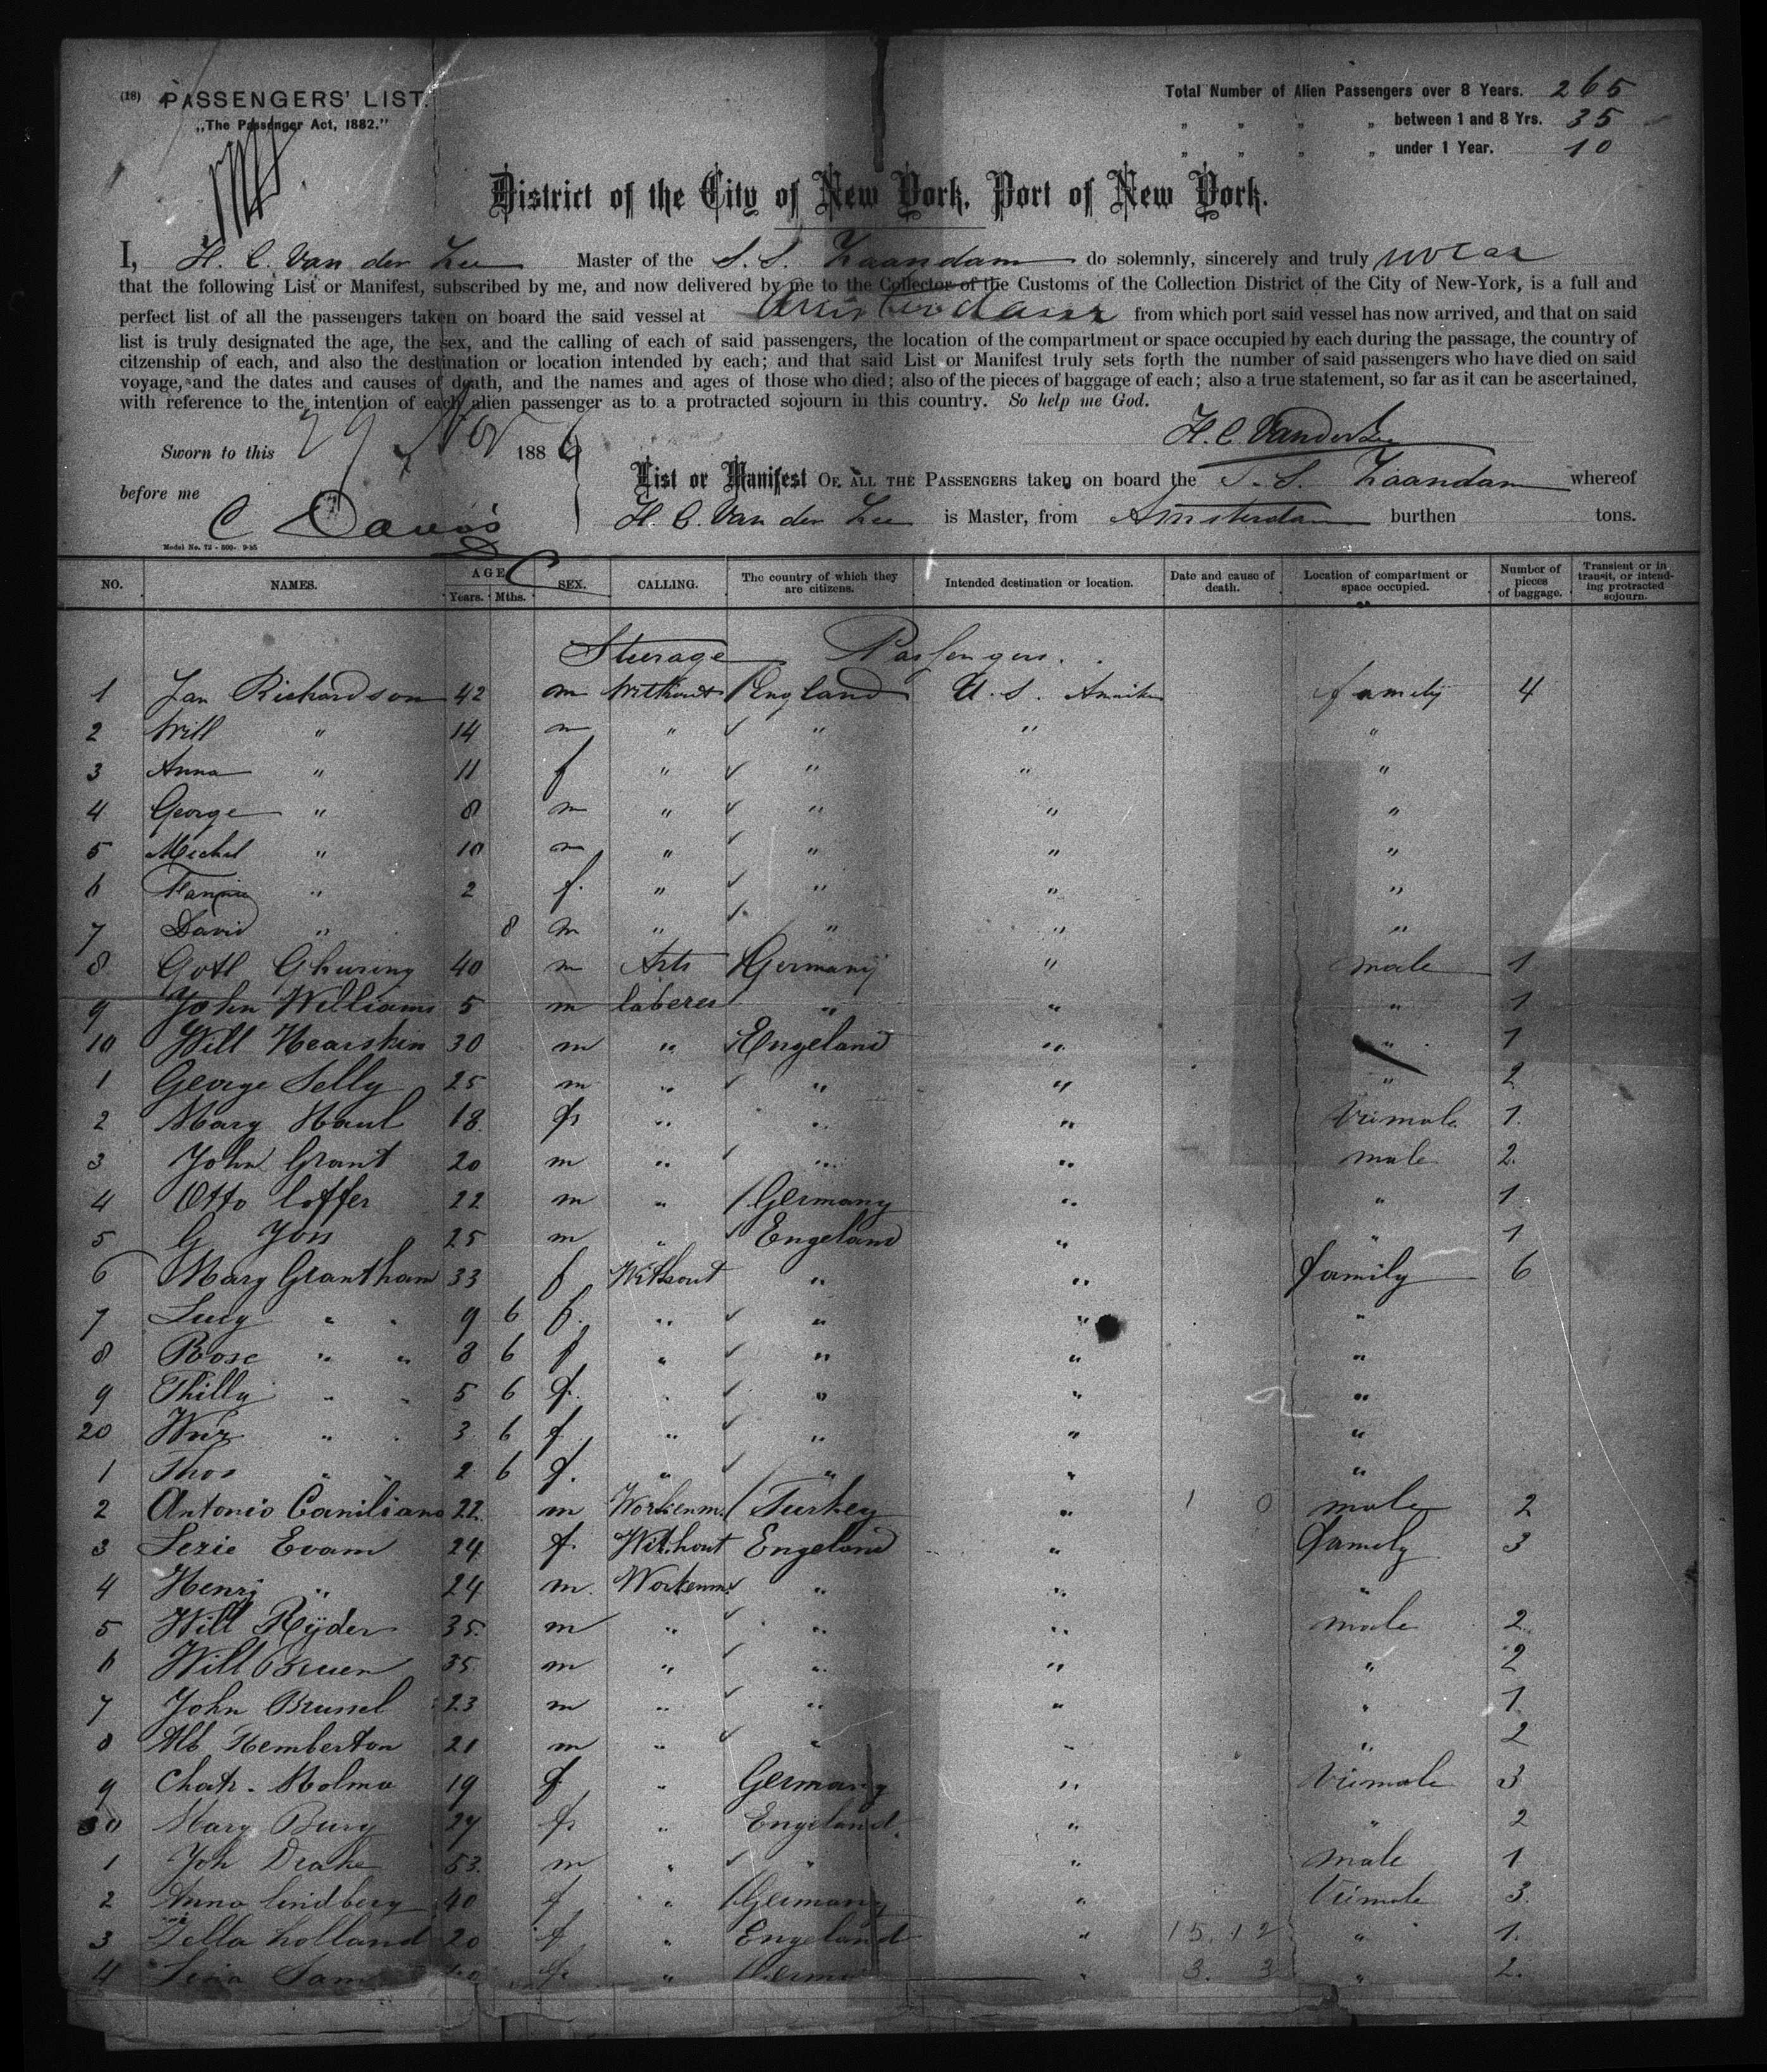 (18) PASSENGERS' LIST.
„The Passenger Act, 1882."
Total Number of Alien Passengers over 8 Years. 265
„ „ „ „ between 1 and 8 Yrs. 35
„ „ „ „ under 1 Year. 10
District of the City of New York, Port of New York.
I, H. C. Van der Zee Master of the S. S. Zaandam do solemnly, sincerely and truly swear
that the following List or Manifest, subscribed by me, and now delivered by me to the Collector of the Customs of the Collection District of the City of New-York, is a full and
perfect list of all the passengers taken on board the said vessel at Amsterdam from which port said vessel has now arrived, and that on said
list is truly designated the age, the sex, and the calling of each of said passengers, the location of the compartment or space occupied by each during the passage, the country of
citzenship of each, and also the destination or location intended by each; and that said List or Manifest truly sets forth the number of said passengers who have died on said
voyage, and the dates and causes of death, and the names and ages of those who died; also of the pieces of baggage of each; also a true statement, so far as it can be ascertained,
with reference to the intention of each alien passenger as to a protracted sojourn in this country. So help me God.
H. C. Van der Zee
Sworn to this 29 Nov 1886
List or Manifest OF ALL THE PASSENGERS taken on board the S. S. Zaandam whereof
before me C Davis H. C. Van der Zee is Master, from Amsterdam burthen tons.
Model No. 72 - 500- 9-85
NO. NAMES. AGE Years. Mths. SEX. CALLING. The country of which they are citizens. Intended destination or location. Date and cause of death. Location of compartment or space occupied. Number of pieces of baggage. Transient or in transit, or intending protracted sojourn.
Steerage Passengers.
1 Jan Richardson 42 m Without England U. S. family 4
2 Will " 14 m " " " "
3 Anna " 11 f " " " "
4 George " 8 m " " " "
5 Michel " 10 m " " " "
6 Fannie " 2 f. " " " "
7 David " 8 m " " " "
8 Gotl 40 m Arts Germany " male 1
9 John Williams 5 m laberer " " " 1
10 Will Hearskin 30 m " Engeland " " 1
1 George Selly 25 m " " " " 2
2 Mary Haul 18 f " " " 1.
3 John Grant 20 m " " " male 2.
4 Otto Loffer 22 m " Germany " " 1
5 G 25 m " Engeland " " 1
6 Mary Grantham 33 f Without " " family 6
7 Lucy " " 9 6 f. " " " "
8 Rose " " 8 6 f " " " "
9 Thilly " " 5 6 f. " " " "
20 " 3 6 f " " " "
1 Thos " " 2 6 f. " " " "
2 Antonio Caniliano 22. m Workenm. Turkey " male 2
3 Lezie Evam 24 f Without Engeland " family 3
4 Henrj " 24 m. Workenm. " " "
5 Will Rÿder 35. m " " " male 2
6 Will Bruen 35 m " " " " 2
7 John Brussel 23 m " " " " 1
8 Alb Hemberton 21 m " " " " 2
9 Holma 19 f " Germany " 3
30 Mary Burg 27 f " Engeland. " " 2
1 Joh Drake 53. m " " " male 1
2 Anna Lindberg 40 f " Germany " 3.
3 Holland 20 f " Engeland " 15.12 " 1.
4 f " " 3. 3 " 2.